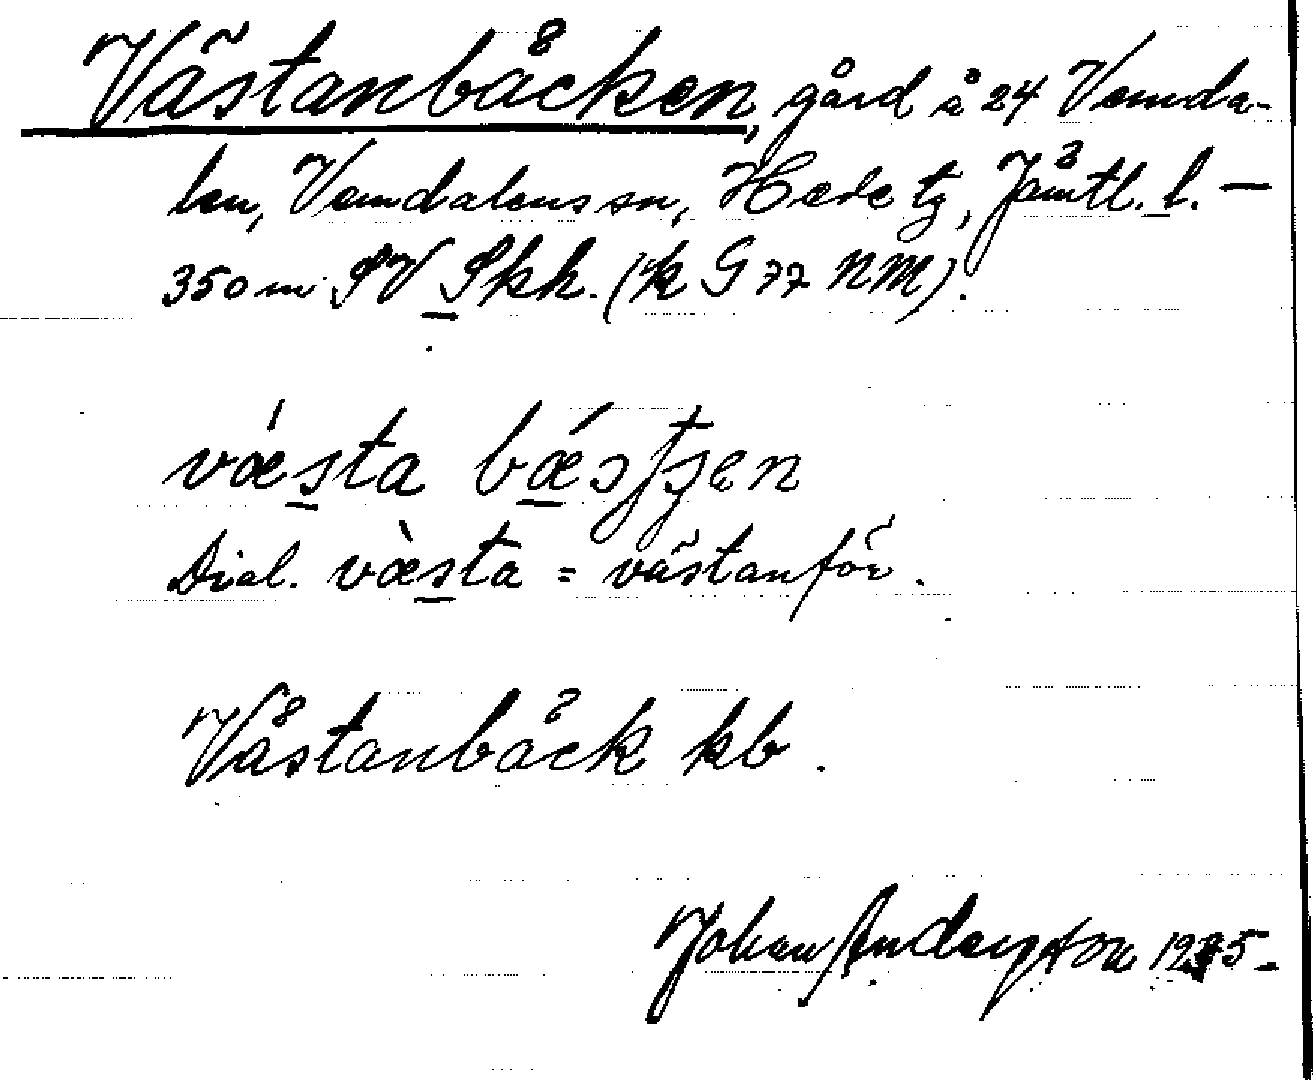 Västanbäcken, gård å 24 Vemda-
len, Vemdalens sn, Hede tg, Jämtl. l. —
350 m SV Skh. (k G 77 NM).
væsta
Dial. væsta = västanför.
Västanbäck kb.
Johan Andersson